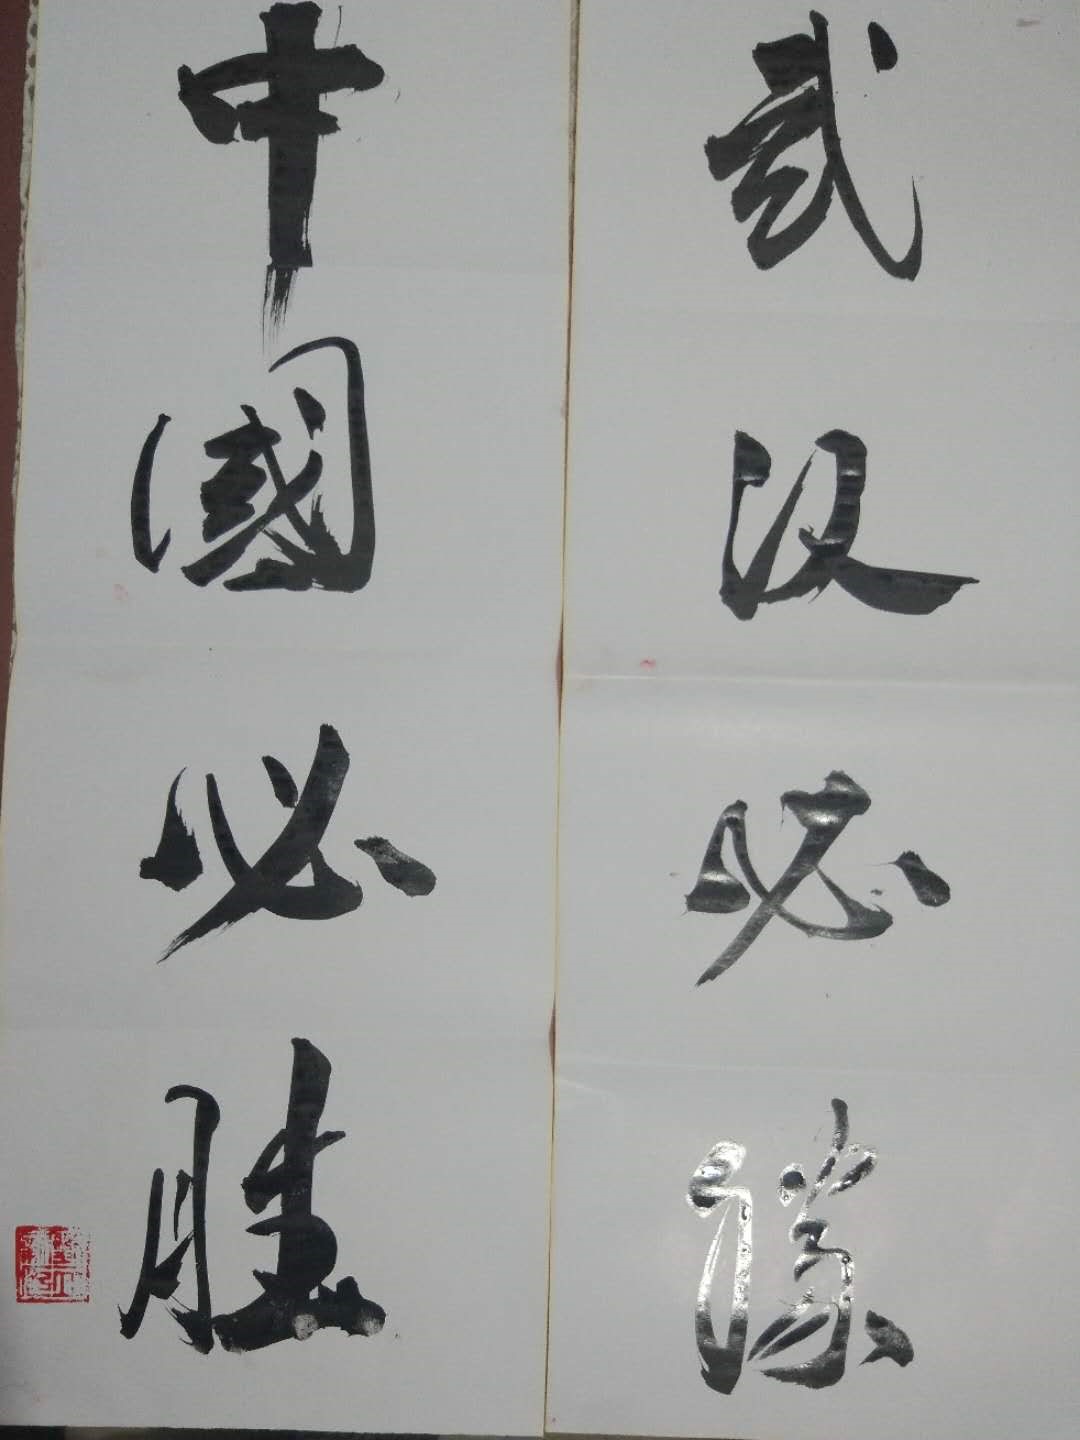 武汉必勝
中國必胜